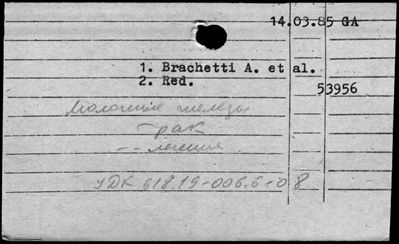 14.03.85 GA
1. Brachetti A. et al.
2. Red.
53956
Молочные железы
- рак
- - лечение
УДК 618.19-006.6-08